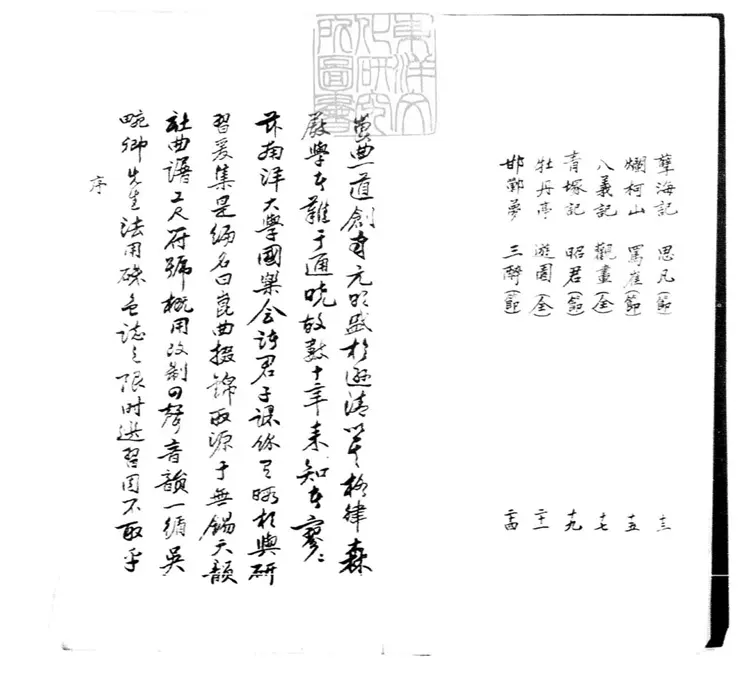 孽海記 思凡(節) 十三
爛柯山 罵崔(節) 十五
八義記 觀畫(全) 十七
青塚記 昭君(節) 十九
牡丹亭 遊園(全) 二十一
邯鄲夢 三醉(節) 二十四
東洋文化研究所圖書
崑曲一道創自元明盛於遜清以其格律森
嚴學者難于通曉故數十年來知者寥〻
茲南洋大學國樂會諸君子課餘有暇相與研
習爰集是編名曰崑曲掇錦取源于無錫天韻
社曲譜工尺符號概用改制四聲音韻一循吳
畹卿先生法用硃色誌之限時選習固不取乎
序